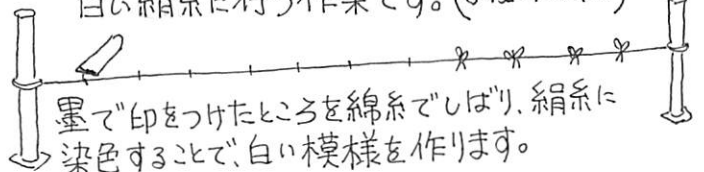 白い絹糸に行う作業です。
墨で印をつけたところを綿糸でしばり、絹糸に
染色することで、白い模様を作ります。